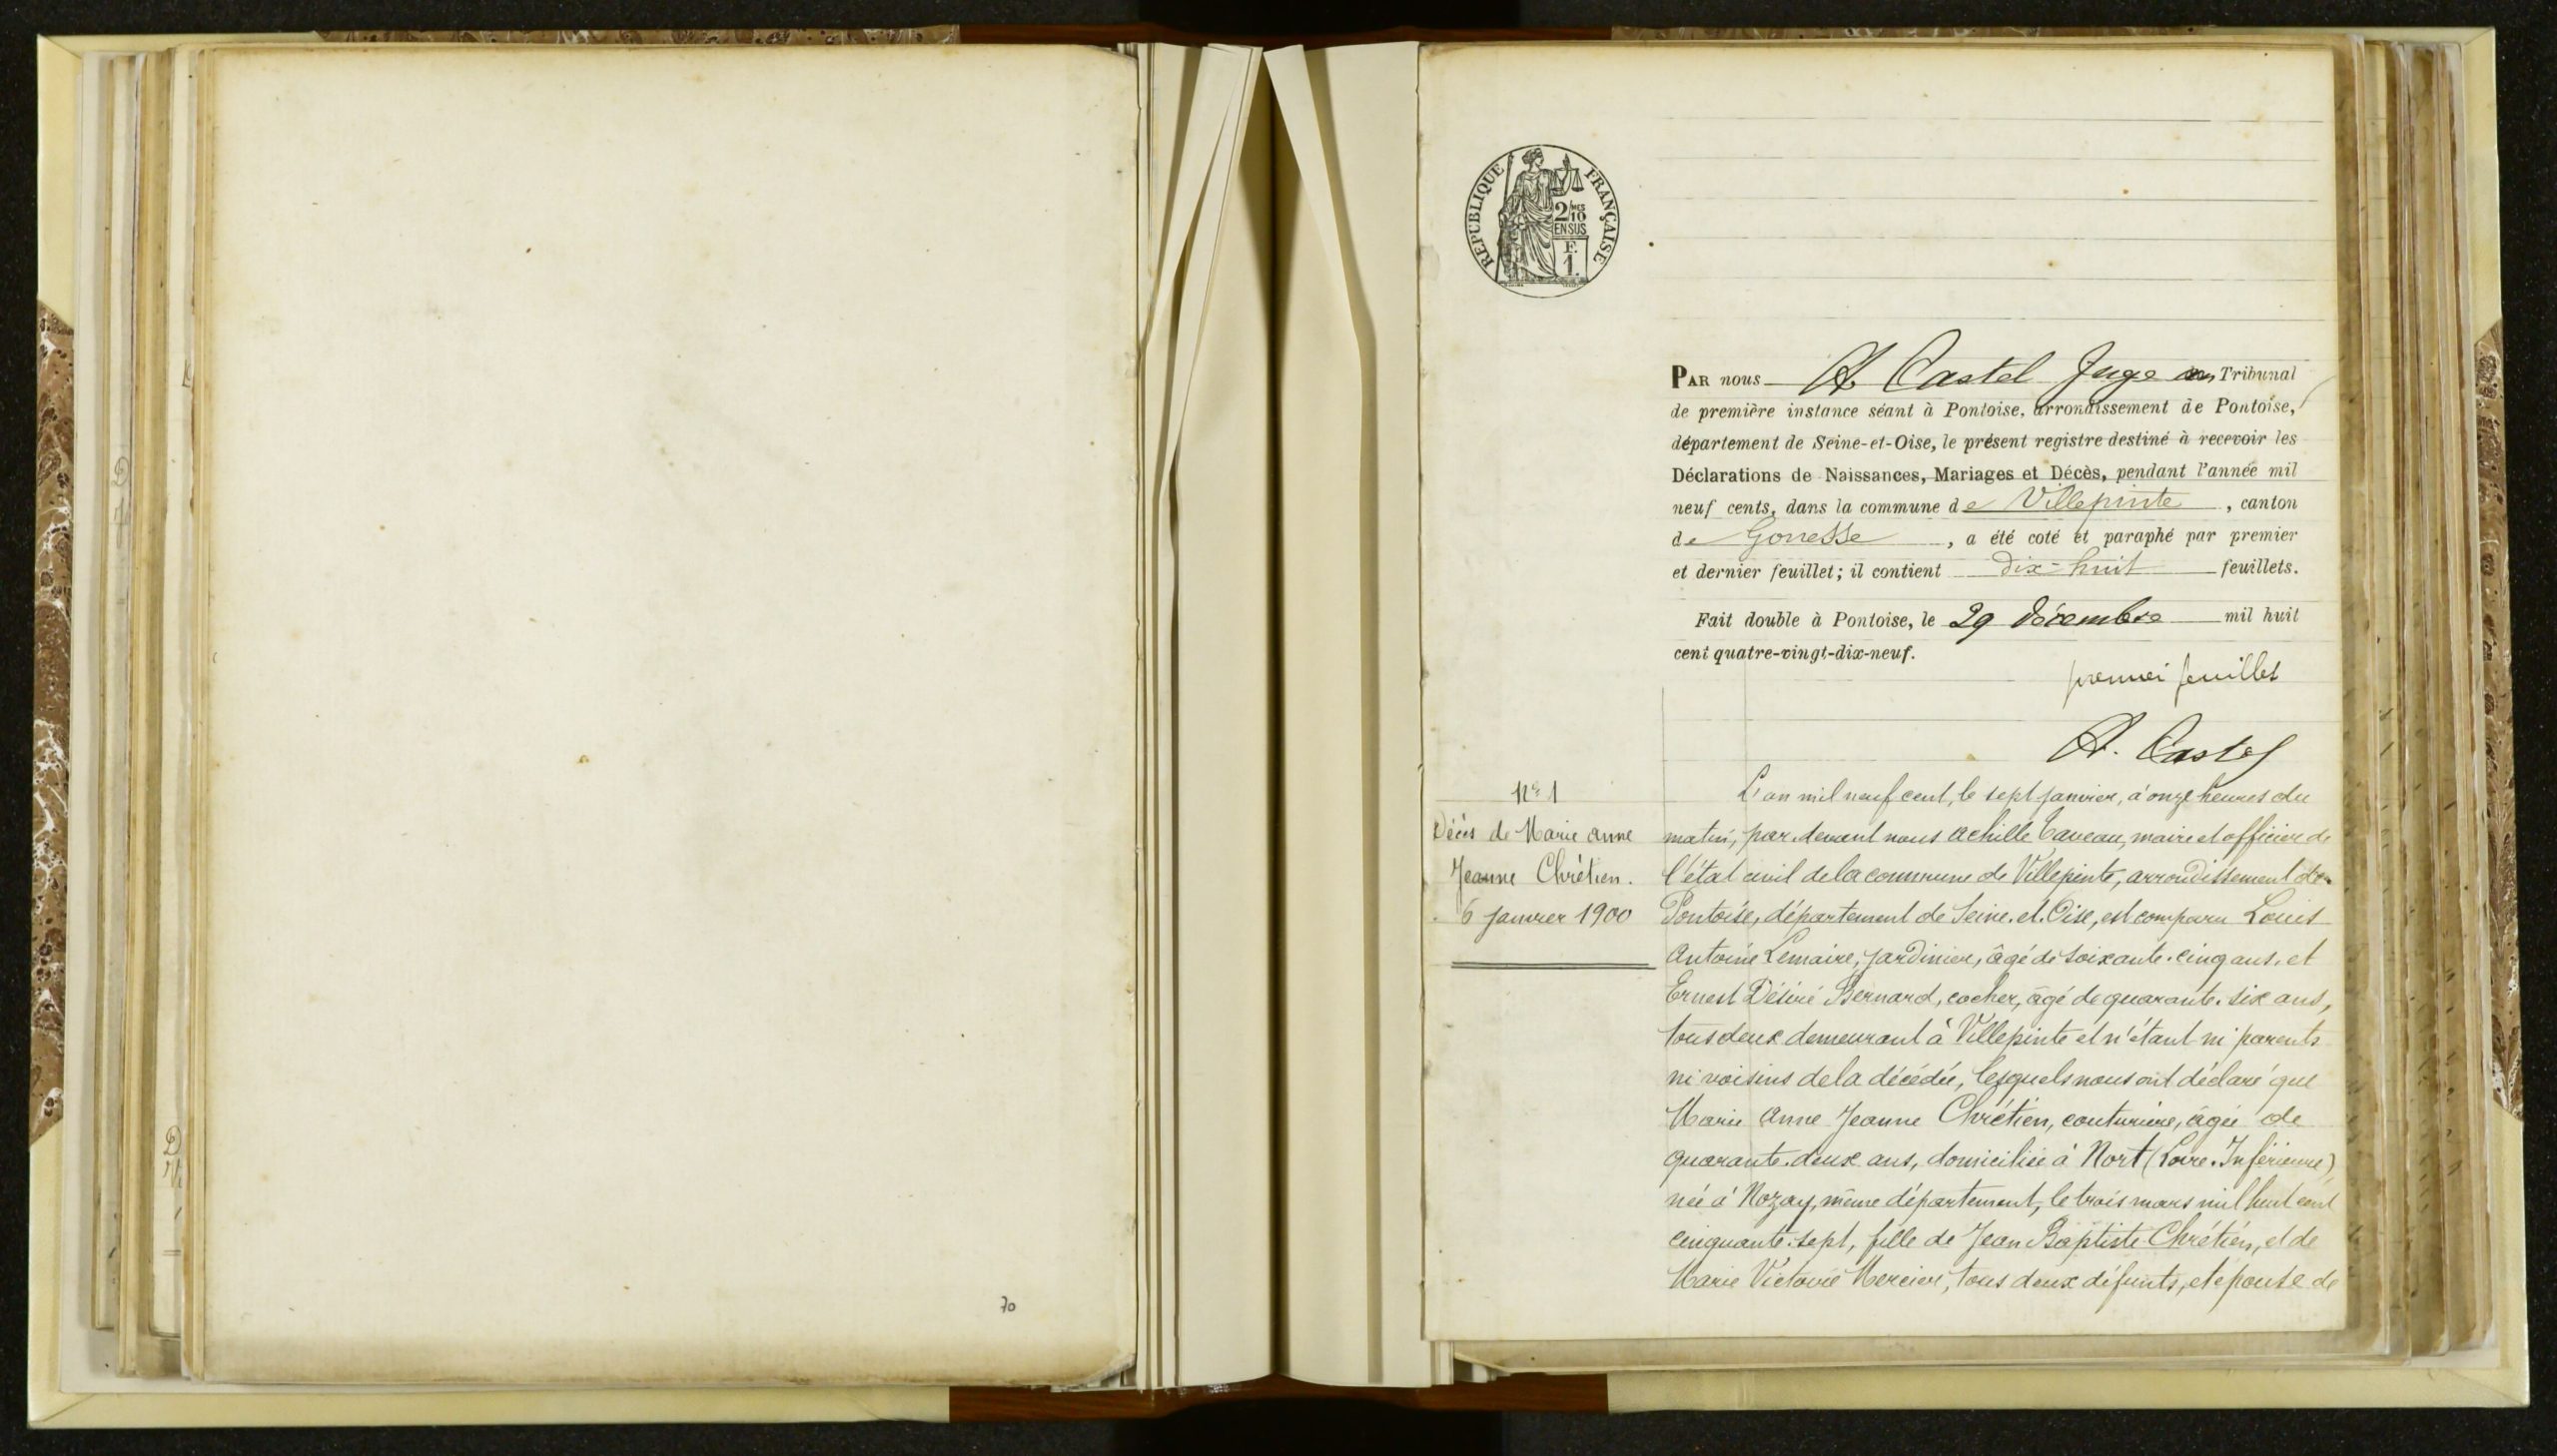 70
RÉPUBLIQUE FRANÇAISE
2/10 MES
EN SUS
F.
1.
PAR nous A. Castel Juge au Tribunal
de première instance séant à Pontoise, arrondissement de Pontoise,
département de Seine-et-Oise, le présent registre destiné à recevoir les
Déclarations de Naissances, Mariages et Décès, pendant l'année mil
neuf cents, dans la commune de Villepinte, canton
de Gonesse, a été coté et paraphé par premier
et dernier feuillet; il contient dix-huit feuillets.
Fait double à Pontoise, le 29 Décembre mil huit
cent quatre-vingt-dix-neuf.
premier feuillet
A. Castel
N° 1
Décès de Marie Anne
Jeanne Chrétien.
6 Janvier 1900
L'an mil neuf cent, le sept janvier, à onze heures du
matin, par devant nous Achille Caveau, maire et officier de
l'état civil de la commune de Villepinte, arrondissement de
Pontoise, département de Seine-et-Oise, est comparu Louis
Antoine Lemaire, jardinier, âgé de soixante-cinq ans, et
Ernest Désiré Bernard, cocher, âgé de quarante-six ans,
tous deux demeurant à Villepinte et n'étant ni parents
ni voisins de la décédée, lesquels nous ont déclaré que
Marie Anne Jeanne Chrétien, couturière, âgée de
quarante-deux ans, domiciliée à Nort (Loire-Inférieure)
née à Nozay, même département, le trois mars mil huit cent
cinquante-sept, fille de Jean Baptiste Chrétien, et de
Marie Victoire Mercier, tous deux défunts, et épouse de